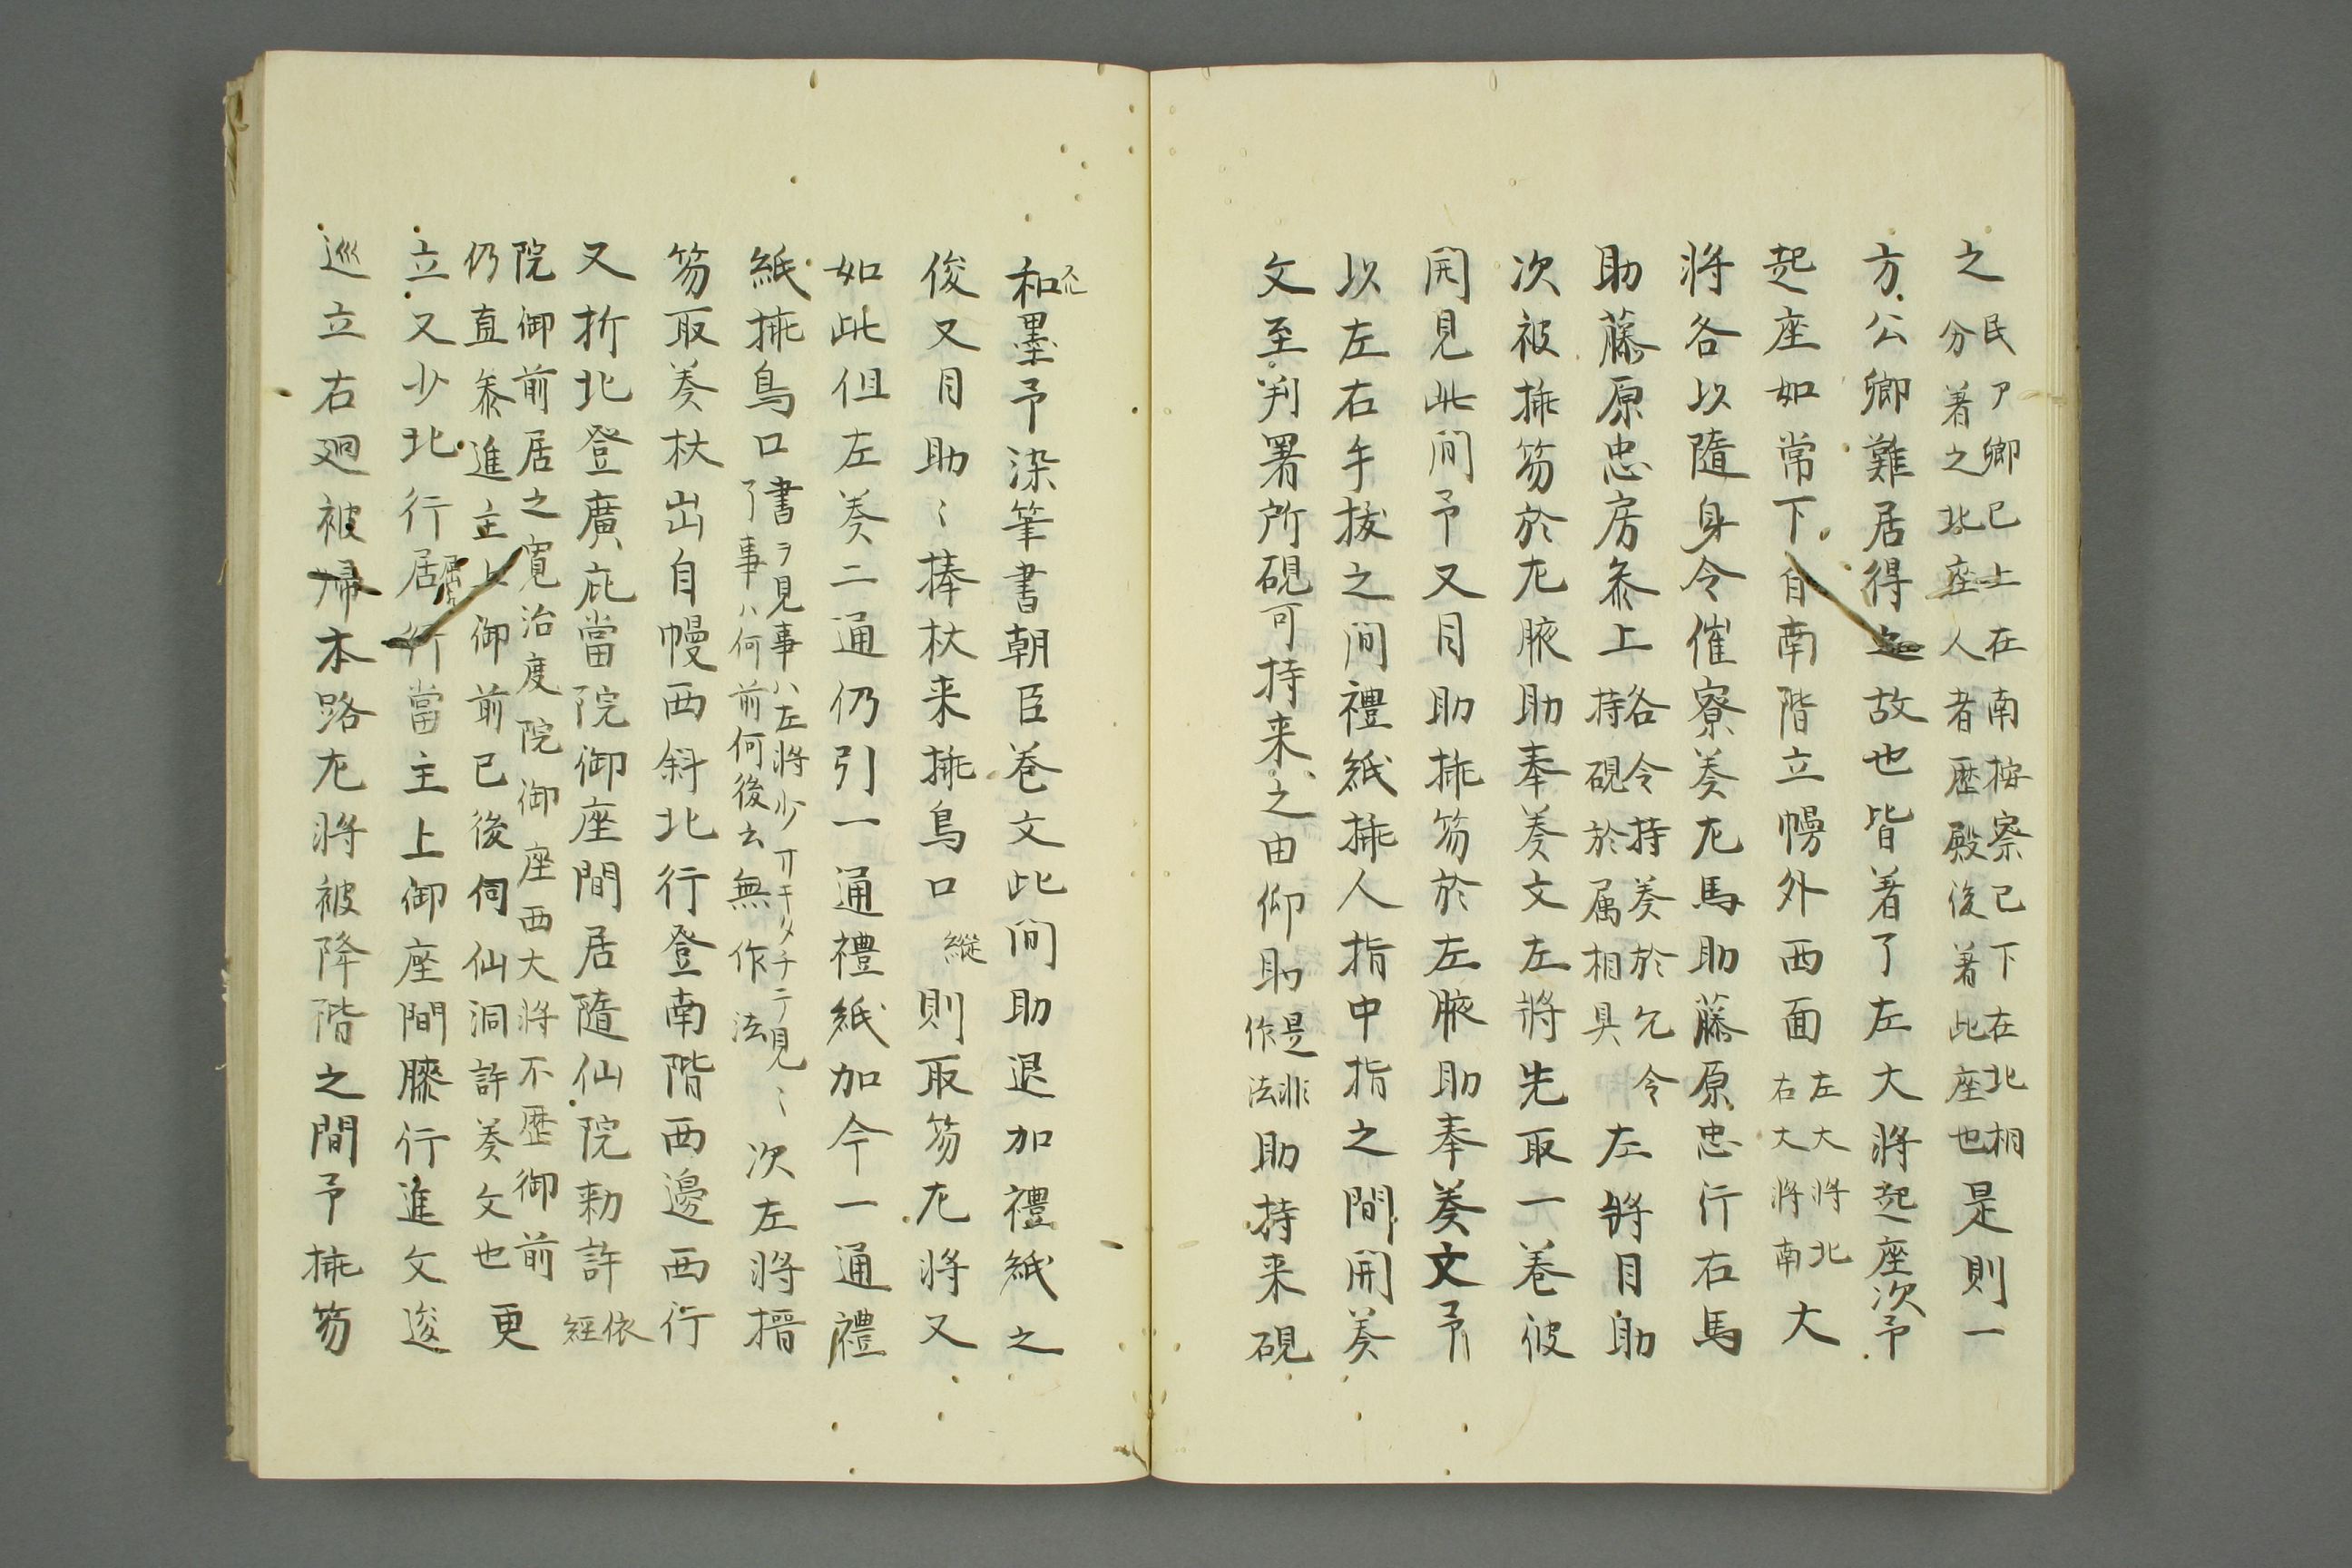 之民ア卿已上在南按察已下在北相分着之北座人者歴殿後着此座也是則一
方公卿難居得故也皆着了左大将起座次予
起座如常下自南階立幔外西面左大将北右大将南大
将各以隨身令催寮奏左馬助藤原忠行右馬
助藤原忠房参上各令持奏於允令持硯於属相具左将目助
次被挿笏於左腋助奉奏文左将先取一巻彼
開見此间予又目助挿笏於左腋助奉奏文予
以左右手抜之间禮紙挿人指中指之間開奏
文至判署所硯可持来之由仰助是非作法助持来硯
和墨予染筆書朝臣巻文此间助退加禮紙之
後又目助〻捧杖来挿鳥口縦則取笏左将又
如此但左奏二通仍引一通禮紙加今一通禮
紙挿鳥口書ヲ見事ハ左将少見〻了事ハ何前何後云無作法次左将搢
笏取奏杖出自幔西斜北行登南階西邊西行
又折北登廣庇當院御座間居隨仙院勅許依經
院御前居之寛治度院御座西大将不歴御前仍直参進主上御前已後伺仙洞許奏文也更
立又少北行居行當主上御座間膝行進文逡
巡立右廻被帰本路左将被降階之間予挿笏